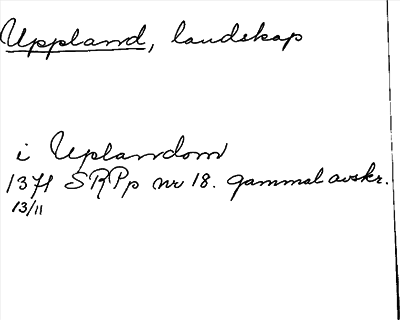 Uppland, landskap
i Uplandom
1371 SRPp nr 18. gammal avskr.
13/11